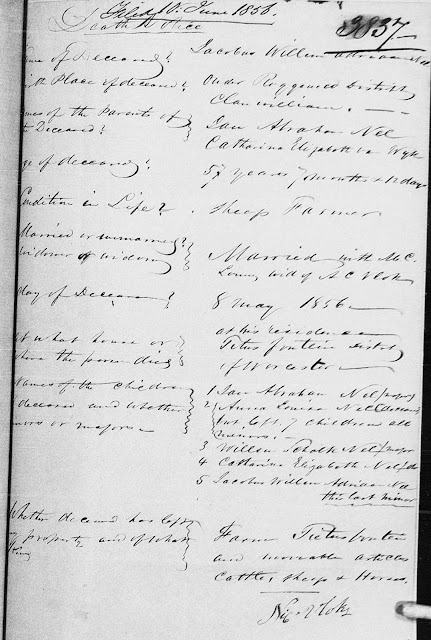 Filed 10 June 1856.
Death Notice
3837
me of Deceased? Jacobus Willem Adriaan Nel
th Place of deceased? Onder Roggeveld District
Clanwilliam. —
mes of the Parents of Jan Abraham Nel
e Deceased? Catharina Elizabeth van Wyk
ge of deceased? 57 years 7 months & 12 days
Condition in Life? Sheep Farmer
Married or unmarried? Married with M. C.
widower or widow wid of A C Vlok
day of Decease? 8 May 1856 —
at what house or at his residence
where the person died Titus fontein District
of Worcester —
names of the children 1 Jan Abraham Nel major
deceased and whether 2 Anna Louisa Nel deceased
nors or majors — but left 7 children all
minors. —
3 Willem Schalk Nel major
4 Catharina Elizabeth Nel do
5 Jacobus Willem Adriaan Nel
the last minor
Whether deceased has left Farm Titus fontein
property and of what and movable articles
Cattle, Sheep & Horses.
Vlok